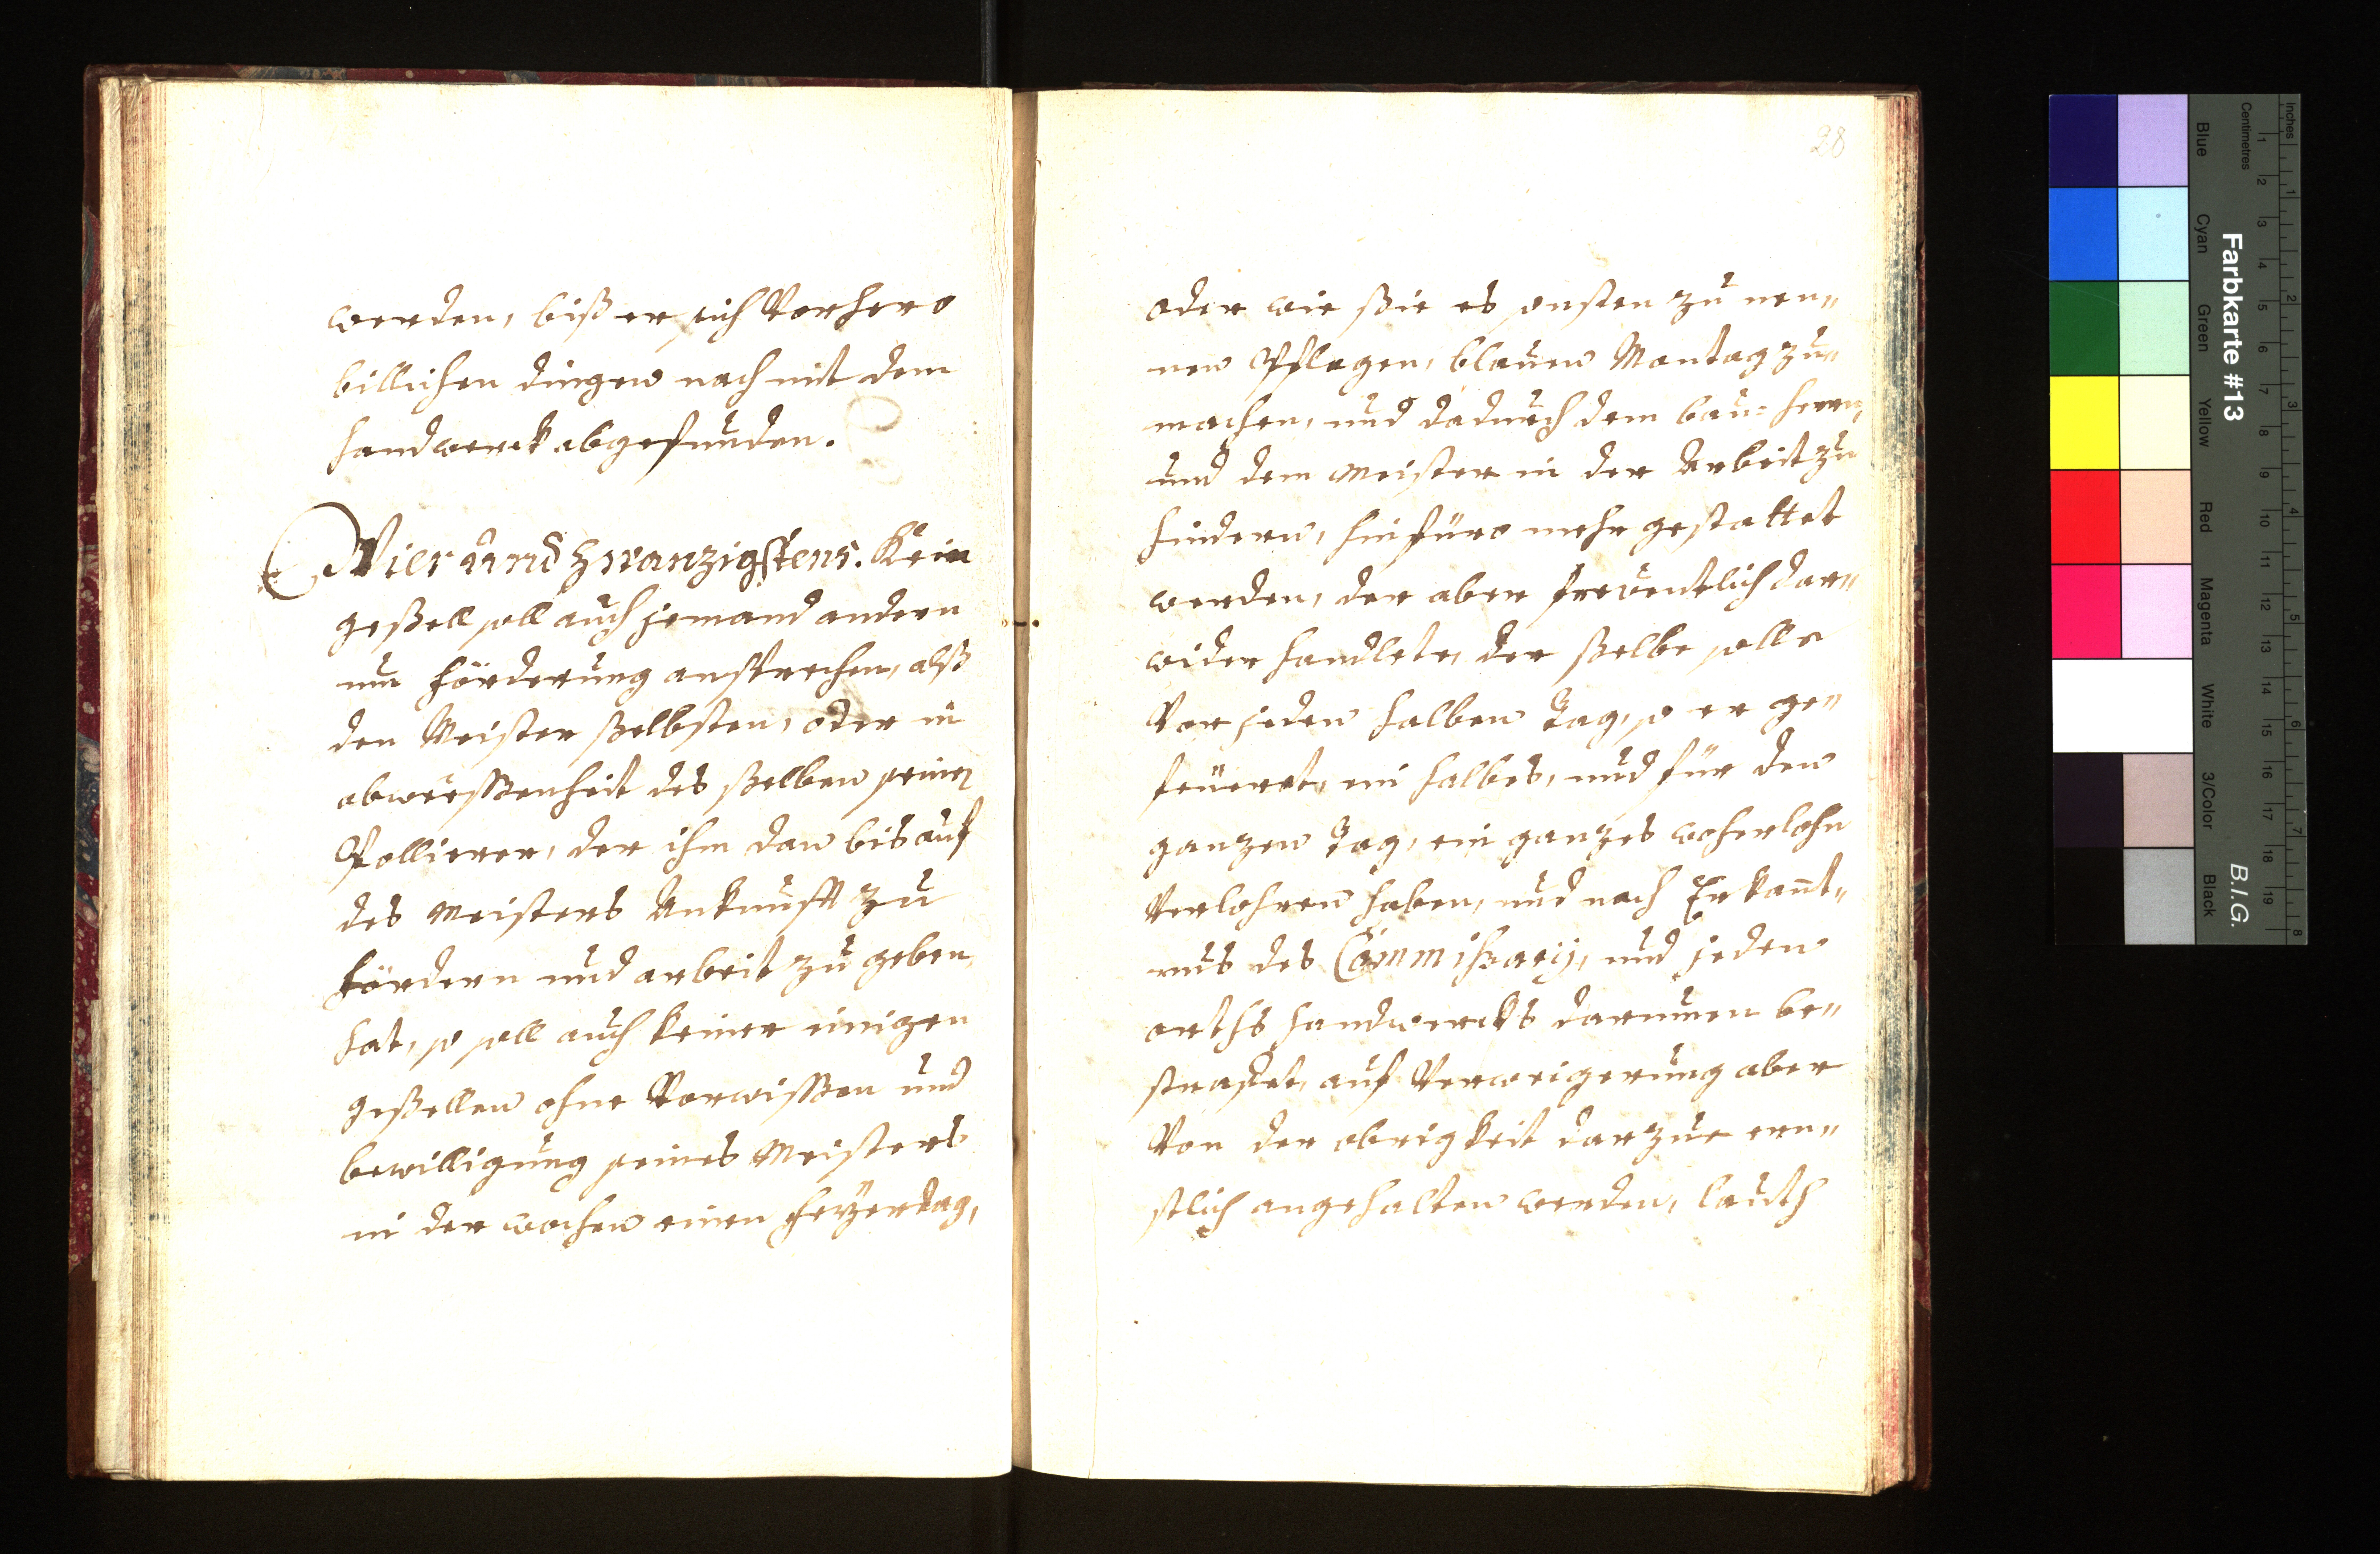 werden, biß er sich Vorhero
billichen dingen nach mit dem
handwerck abgefunden.
Vier und Zwanzigstens. Kein
geßell soll auch jemand andern
um förderung ansprechen, alß
den Meister ßelbsten, oder in
abweeßenheit des ßelben seinen
Pollierer, der ihm dan bis auf
des Meisters Ankunfft zu
fördern und arbeit zu geben
hat, so soll auch keiner einigen
geßellen ohne Vorwißen und
bewilligung seines Meisters
in der wochen einen feyertag,
28
oder wie ßie es sonsten zu nen„
nen Pflegen, blauen Montag zu„
machen, und dadurch dem bau-herrn,
und dem Meister in der Arbeit zu
hindern, hinfüro mehr gestattet
werden, der aber freventlich dar„
wider handlete, der ßelbe solle
Vor jeden halben Tag, so er ge„
feüeret, ein halbes, und für den
ganzen Tag, ein ganzes wochenlohn
Verlohren haben, und nach Erkant„
nus des Commißarij, und jeden
orths handwercks darumen be„
strafet, auf Verweigerung aber
Von der obrigkeit darzue ern„
stlich angehalten werden, lauth
Inches
Centimetres
Farbkarte #13
B.I.G.
Blue
Cyan
Green
Yellow
Red
Magenta
White
3/Color
Black
1 2 3 4 5 6 7 8 9 10 11 12 13 14 15 16 17 18 19
1 2 3 4 5 6 7 8